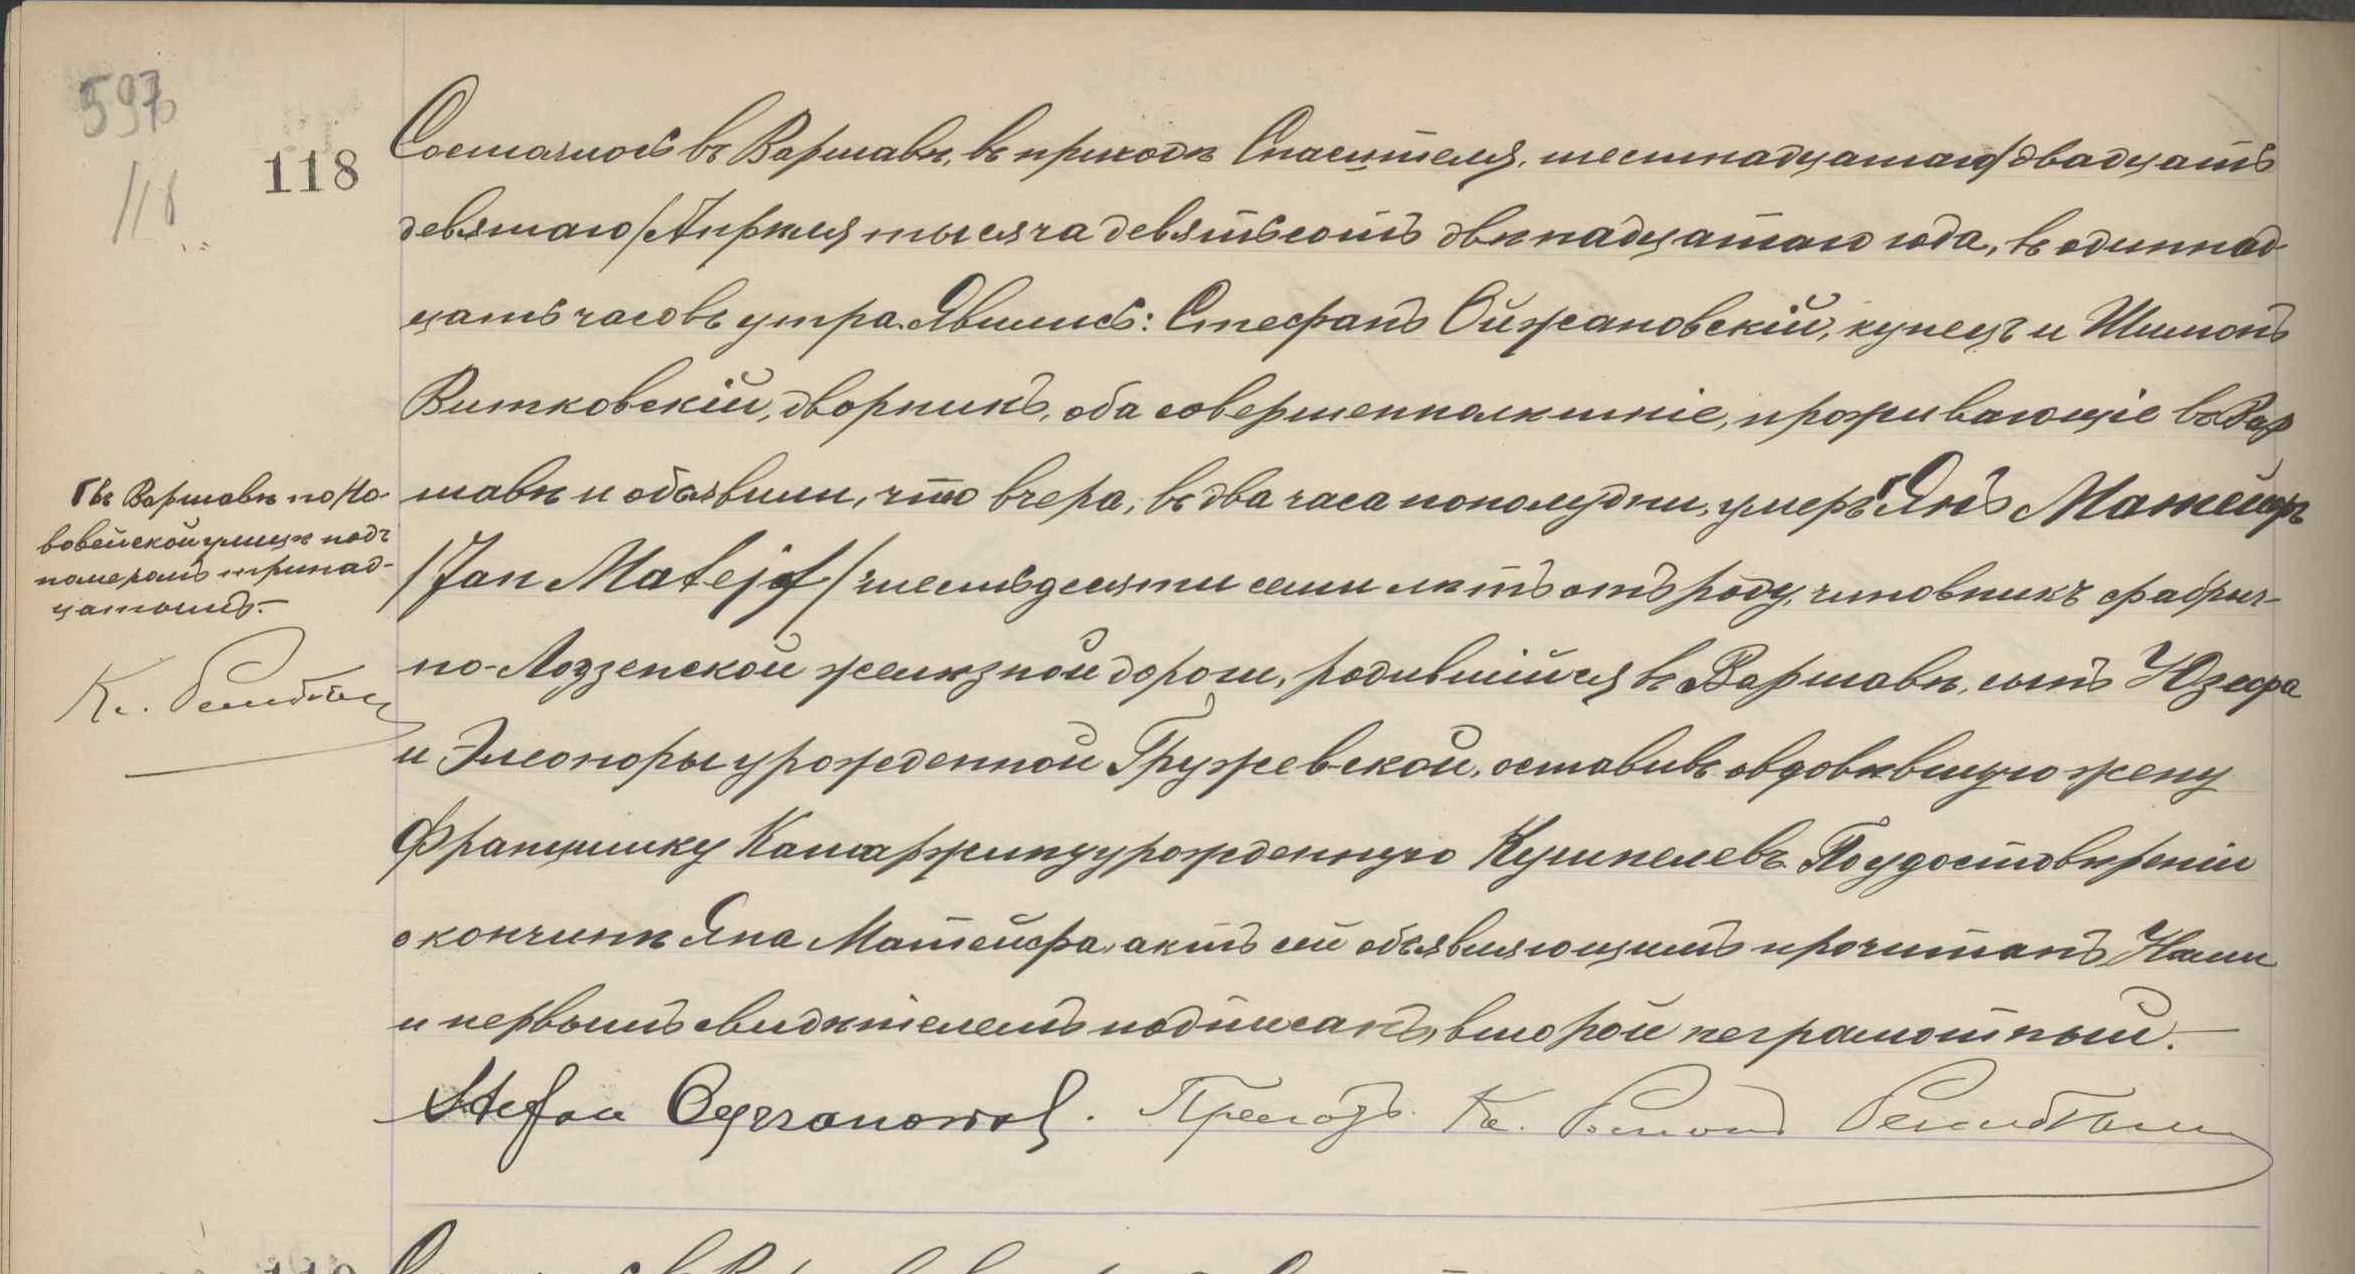 597
118
118
Состоялось въ Варшавѣ, въ приходѣ Спасителя, шестнадцатаго/двадцать
девятаго/Апрѣля тысяча девятьсотъ двѣнадцатаго года, въ одиннад-
цать часовъ утра. Явились: Стефанъ Ойжановскій, купецъ и Шимонъ
Витковскій, дворникъ, оба совершеннолѣтніе, проживающіе въ Вар
шавѣ и объявили, что вчера, въ два часа пополудни, умеръ Г Янъ Матейфъ
/Jan Matejf/ шестьдесяти семи лѣтъ отъ роду, чиновникъ фабрич-
но-Лодзенской желѣзной дороги, родившійся въ Варшавѣ, сынъ Юзефа
и Элеоноры урожденной Гружевской, оставивъ овдовѣвшую жену
Францишку Катаржину урожденную Кушнелевъ. По удостовѣреніи
о кончинѣ Яна Матейфа, актъ сей объявляющимъ прочитанъ, Нами
и первымъ свидѣтелемъ подписанъ, второй неграмотный.
Г въ Варшавѣ по Но-
вовейской улицѣ подъ
номеромъ тринад-
цатымъ.
Кс.
Stefan Ojrzanowski. Кс.